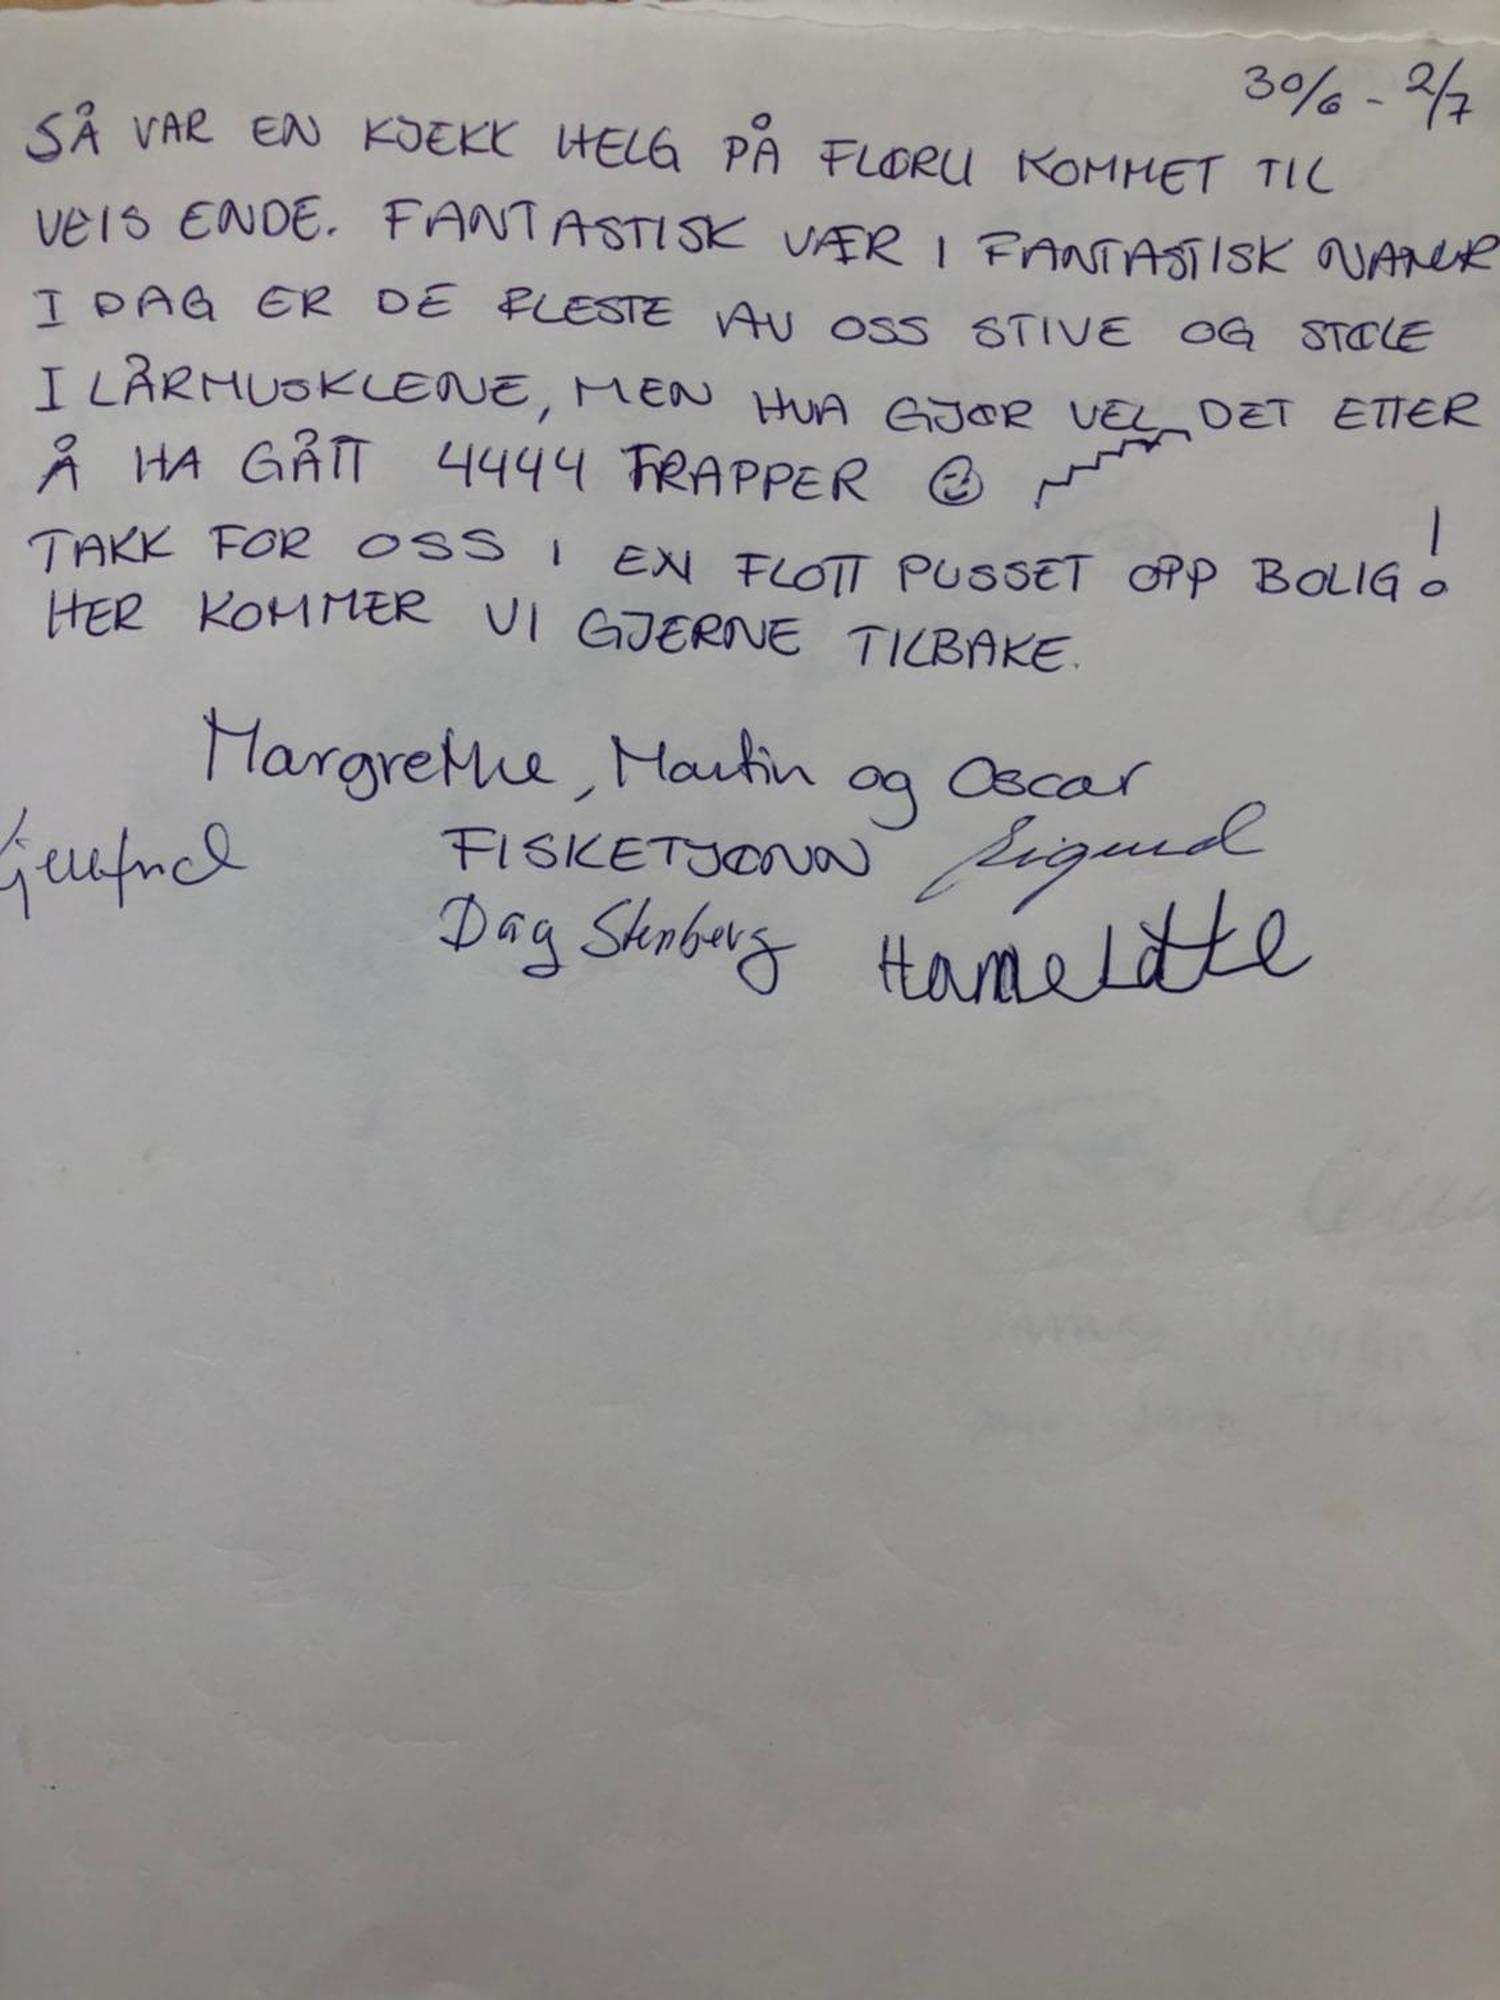 30/6 - 2/7
SÅ VAR EN KJEKK HELG PÅ FLØRLI KOMMET TIL
VEIS ENDE. FANTASTISK VÆR I FANTASTISK NATUR
I DAG ER DE FLESTE AV OSS STIVE OG STØLE
I LÅRMUSKLENE, MEN HVA GJØR VEL DET ETTER
Å HA GÅTT 4444 TRAPPER
TAKK FOR OSS I EN FLOTT PUSSET OPP BOLIG!
HER KOMMER VI GJERNE TILBAKE.
Margrethe, Martin og Oscar
FISKETJØNN Sigurd
Dag Stenberg Hanne Lotte